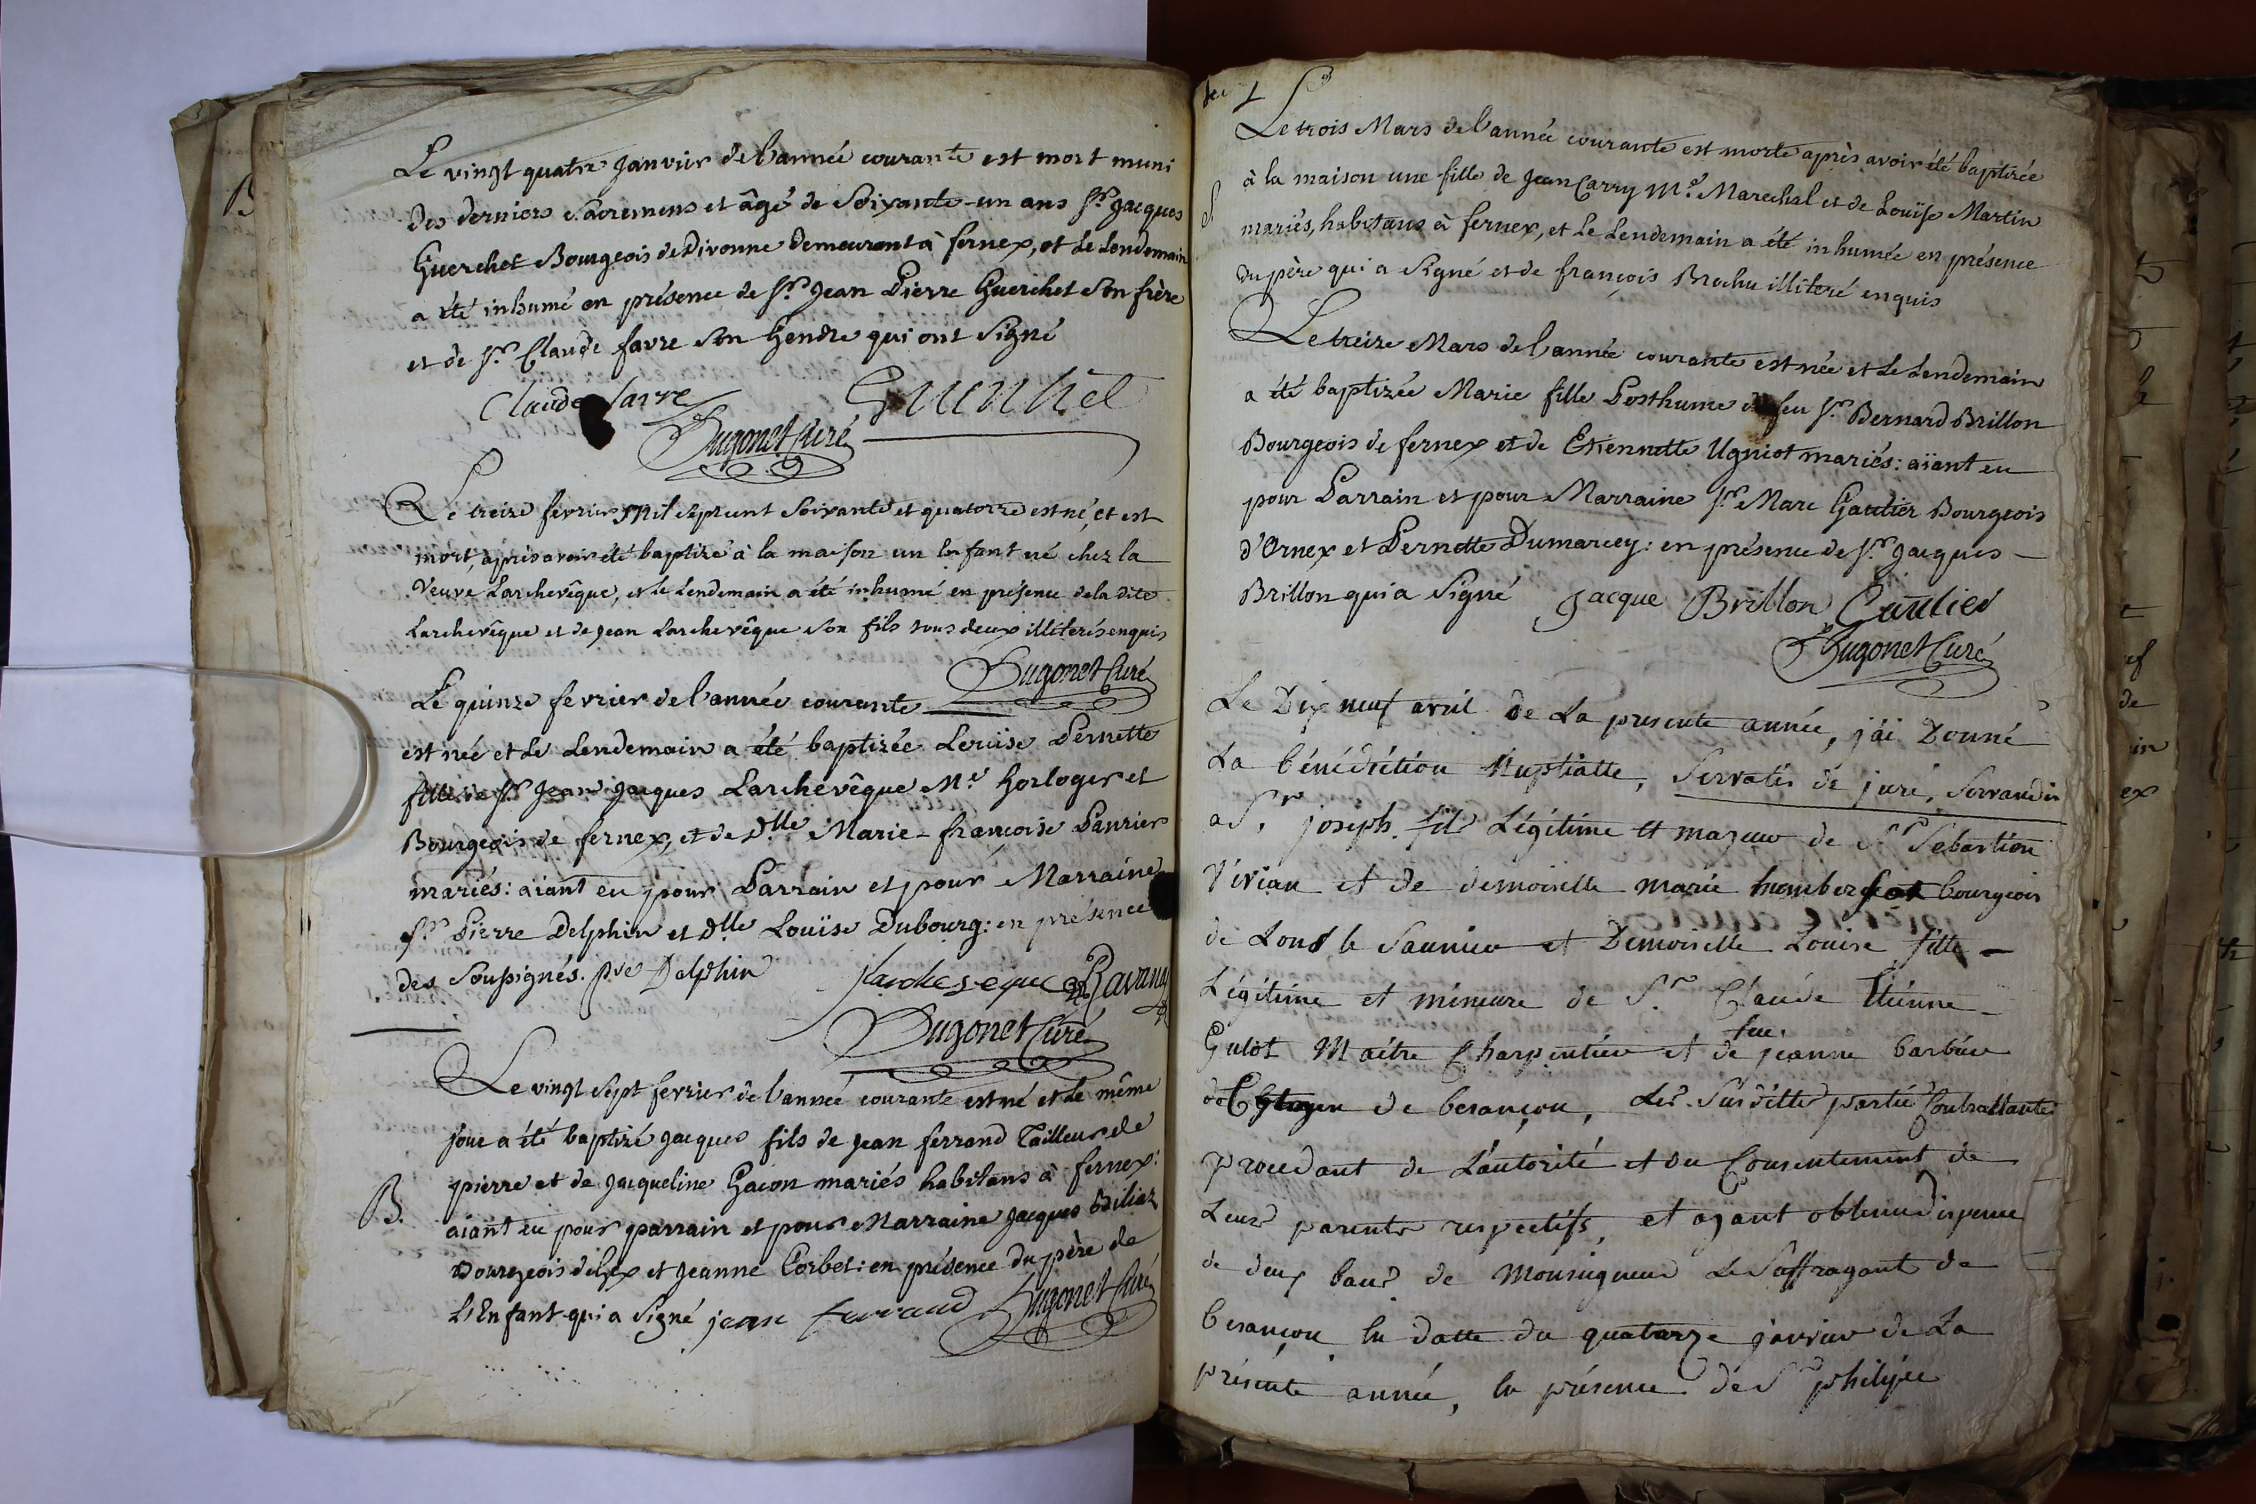 Le vingt quatre Janvier de l'année courante est mort muni
des derniers sacremens et âgé de Soixante-un ans Sr. Jacques
Guerchet Bourgeois de Divonne demeurant à fernex, et Le Lendemain
a été inhumé en présence de Sr. Jean Pierre Guerchet Son frère
et de Sr. Claude favre Son Gendre qui ont Signé
Claude favre Guerchet
Hugonet Curé
Le treize fevrier Mil sept cent Soixante et quatorze est né, et est
mort, après avoir été baptizé à la maison un Enfant né chez la
Veuve Larchevêque, et le Lendemain a été inhumé en présence de la dite
Larchevêque et de Jean Larchevêque Son fils tous deux illiterés enquis
Hugonet Curé
Le quinze fevrier de l'année courante
est née et Le Lendemain a été baptizée Louise Pernette
fille de Sr. Jean Jacques Larchevêque Me. horloger et
Bourgeois de fernex, et de Dlle Marie-françoise Panrier
mariés: aïant eu pour Parrain et pour Marraine
Sr. Pierre Delphin et Dlle Louïse Dubourg: en présence
des Soussignés. pre Delphin Larcheveque
Hugonet Curé
Le vingt Sept fevrier de l'année courante est né et Le même
jour a été baptizé Jacques fils de Jean ferrand Tailleur de
pierre et de Jacqueline Gacon mariés habitans à fernex:
B.
aïant eu pour parrain et pour Marraine Jacques Biliaz
Bourgeois de Gex et Jeanne Corbet: en présence du père de
L'Enfant qui a Signé jean ferraud Hugonet Curé
Le trois Mars de l'année courante est morte après avoir été baptizée
à la maison une fille de Jean Carry Me. Marechal et de Louïse Martin
mariés, habitans à fernex, et Le Lendemain a été inhumée en présence
du père qui a Signé et de françois Brochu illiteré enquis
Le treize Mars de l'année courante est née et Le Lendemain
a été baptizée Marie fille Posthume de feu Sr. Bernard Brillon
Bourgeois de fernex et de Etiennette Ugniot mariés: aïant eu
pour Parrain et pour Marraine Sr. Marc Gautier Bourgeois
d'Ornex et Pernette Dumarcey: en présence de Sr. Jacques
Brillon qui a Signé Jacque Brillon Gautier
Hugonet Curé
Le Dix neuf avril de La presente année, j'ái Donné
La bénédiction Nuptialle, Servatis de juré, Servandis
a Sr. joseph fils Légitime et majeur de Sr Sebastien
Vivian et de demoiselle marie humbert bourgeois
de Lons le Saunier et Demoiselle Louise fille
Légitime et mineure de Sr. Claude Etienne
Gulot Maitre Charpentier et de feue jeanne barbier
de besançon, Les Susdittes parties Contractantes
procedant de L'autorité et du Consentement de
Leurs parents respectifs, et ayant obtenu Dispense
de deux bans de Monseigneur Le Suffragant de
besançon en datte du quatorze janvier de La
présente année, en présence de Sr philipe